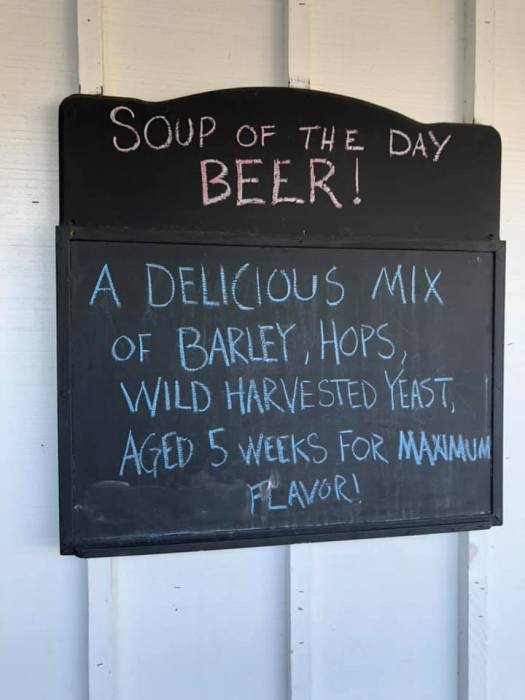 SOUP OF THE DAY
BEER!
A DELICIOUS MIX
OF BARLEY, HOPS,
WILD HARVESTED YEAST,
AGED 5 WEEKS FOR MAXIMUM
FLAVOR!